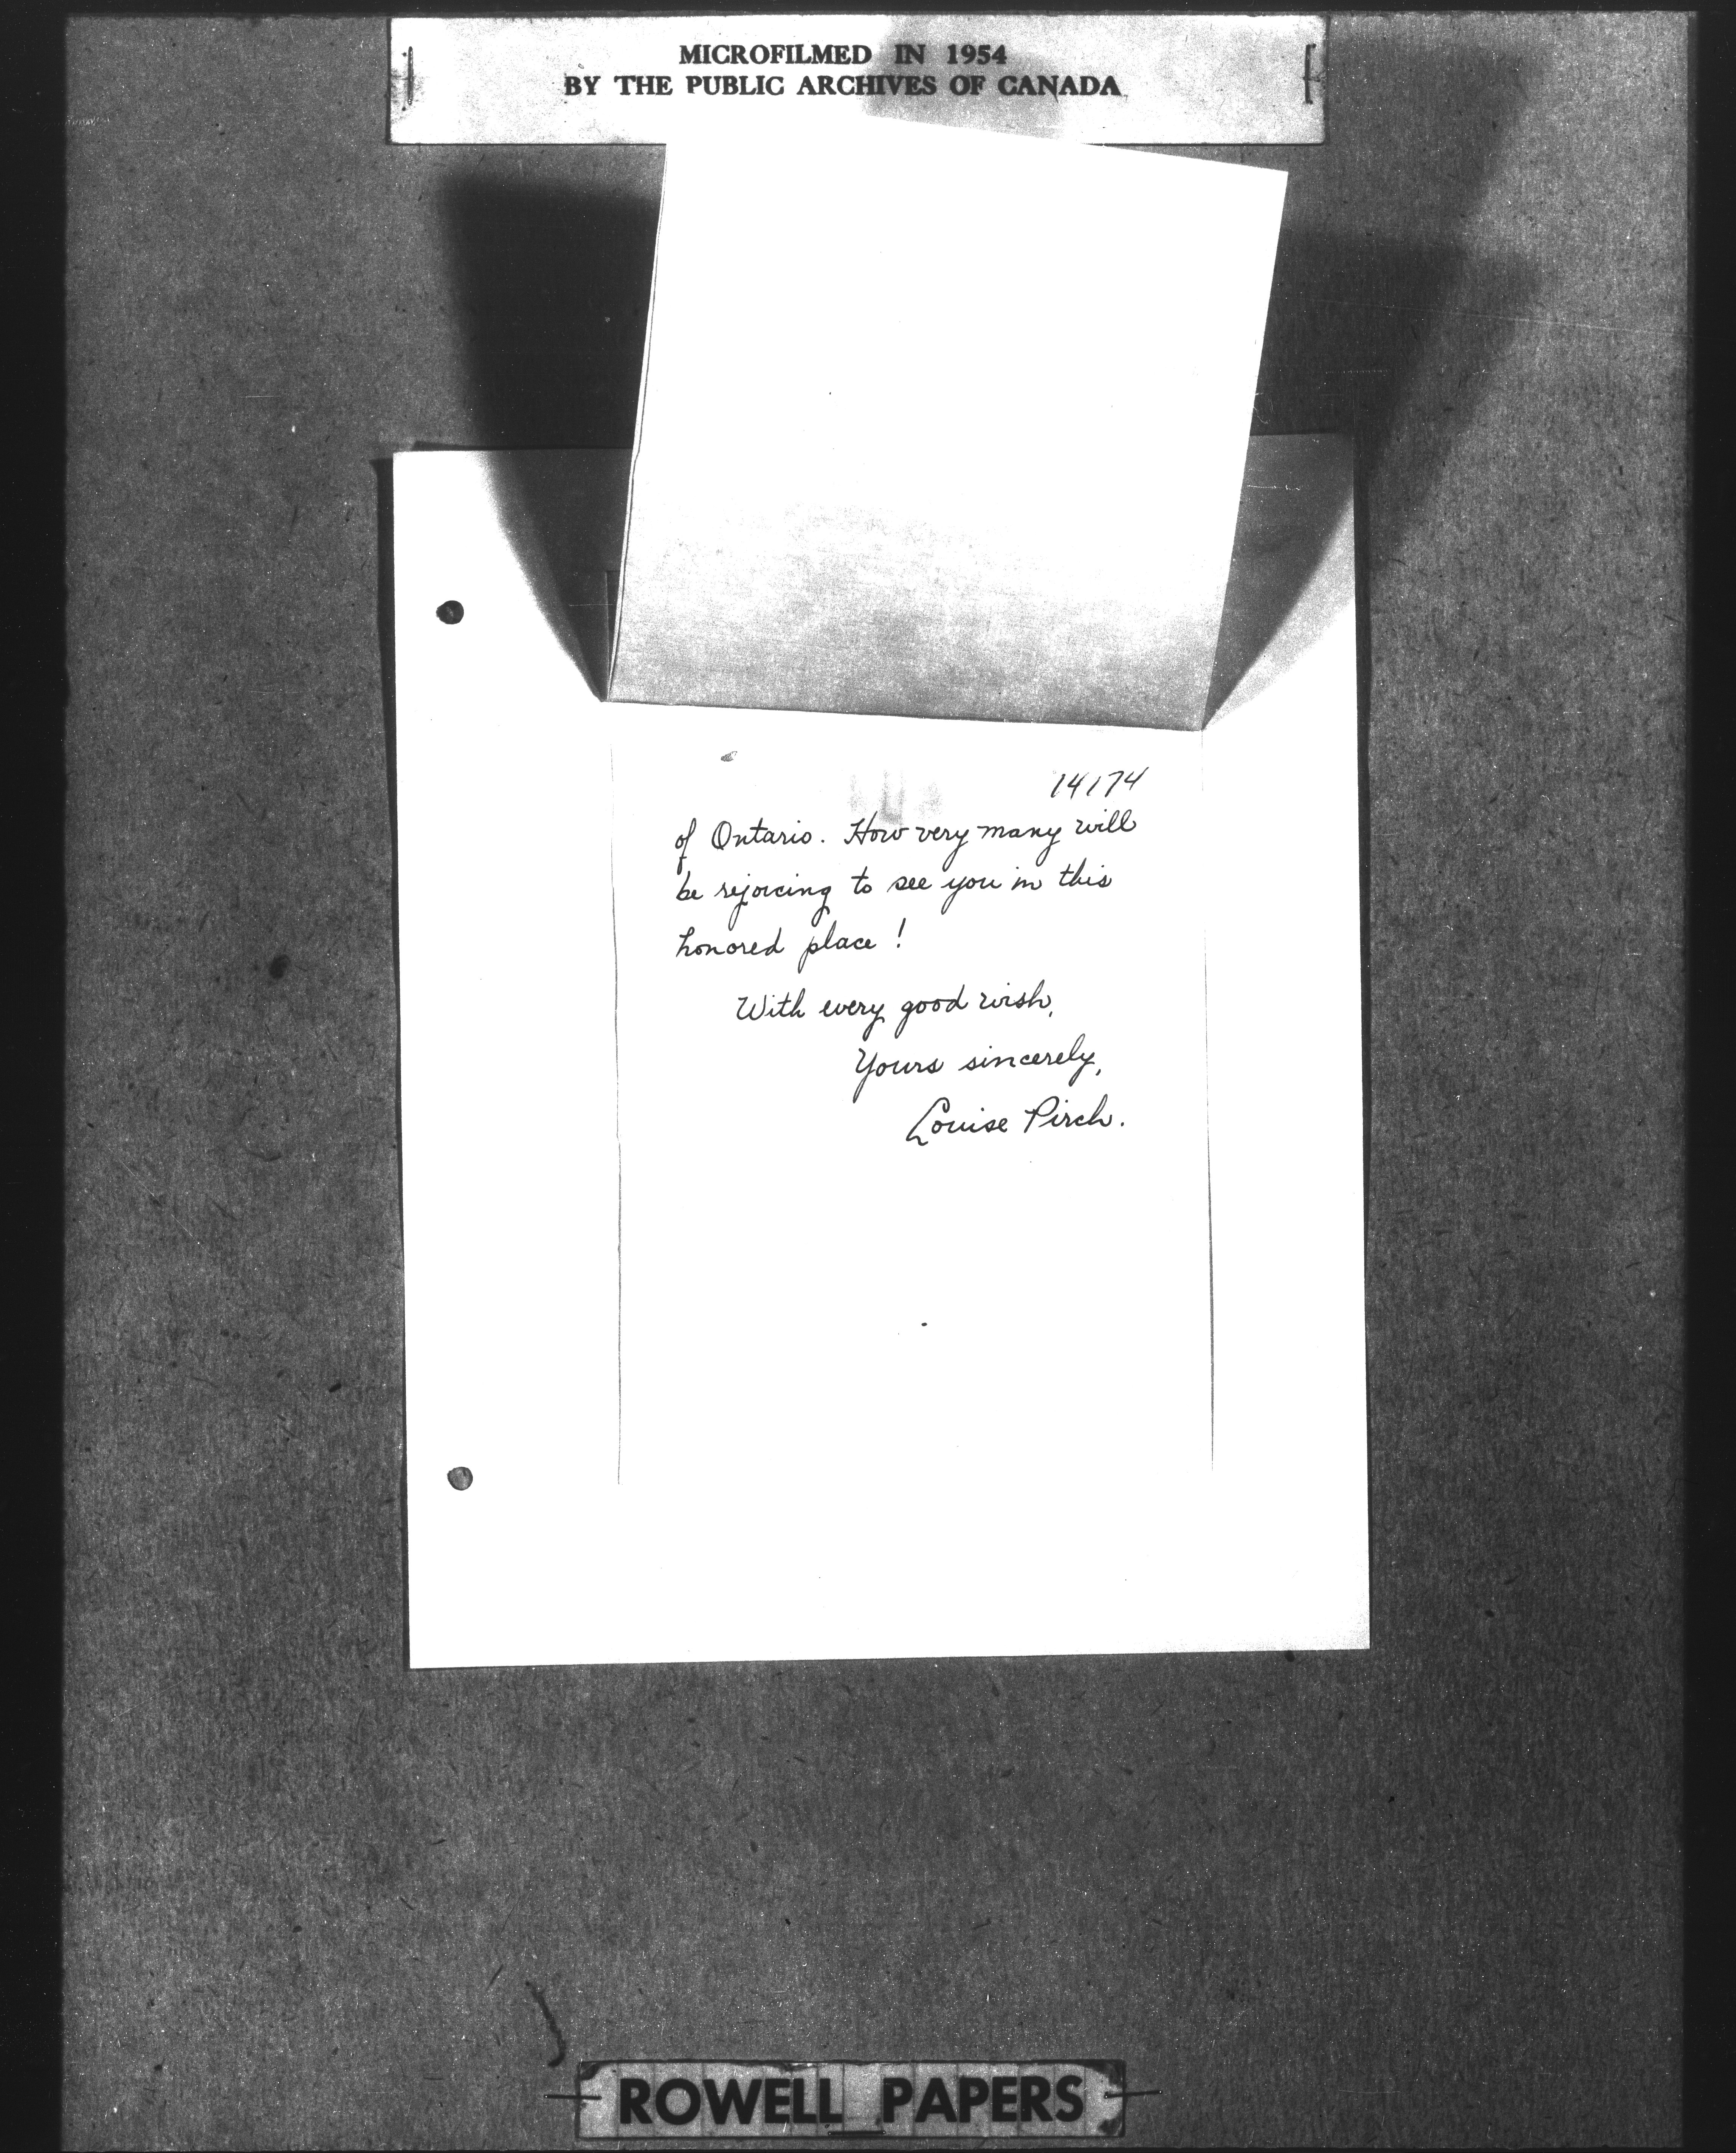 MICROFILMED IN 1954
BY THE PUBLIC ARCHIVES OF CANADA
14174
of Ontario. How very many will
be rejoicing to see you in this
honored place!
With every good wish,
Yours sincerely,
Louise Pirch.
ROWELL PAPERS